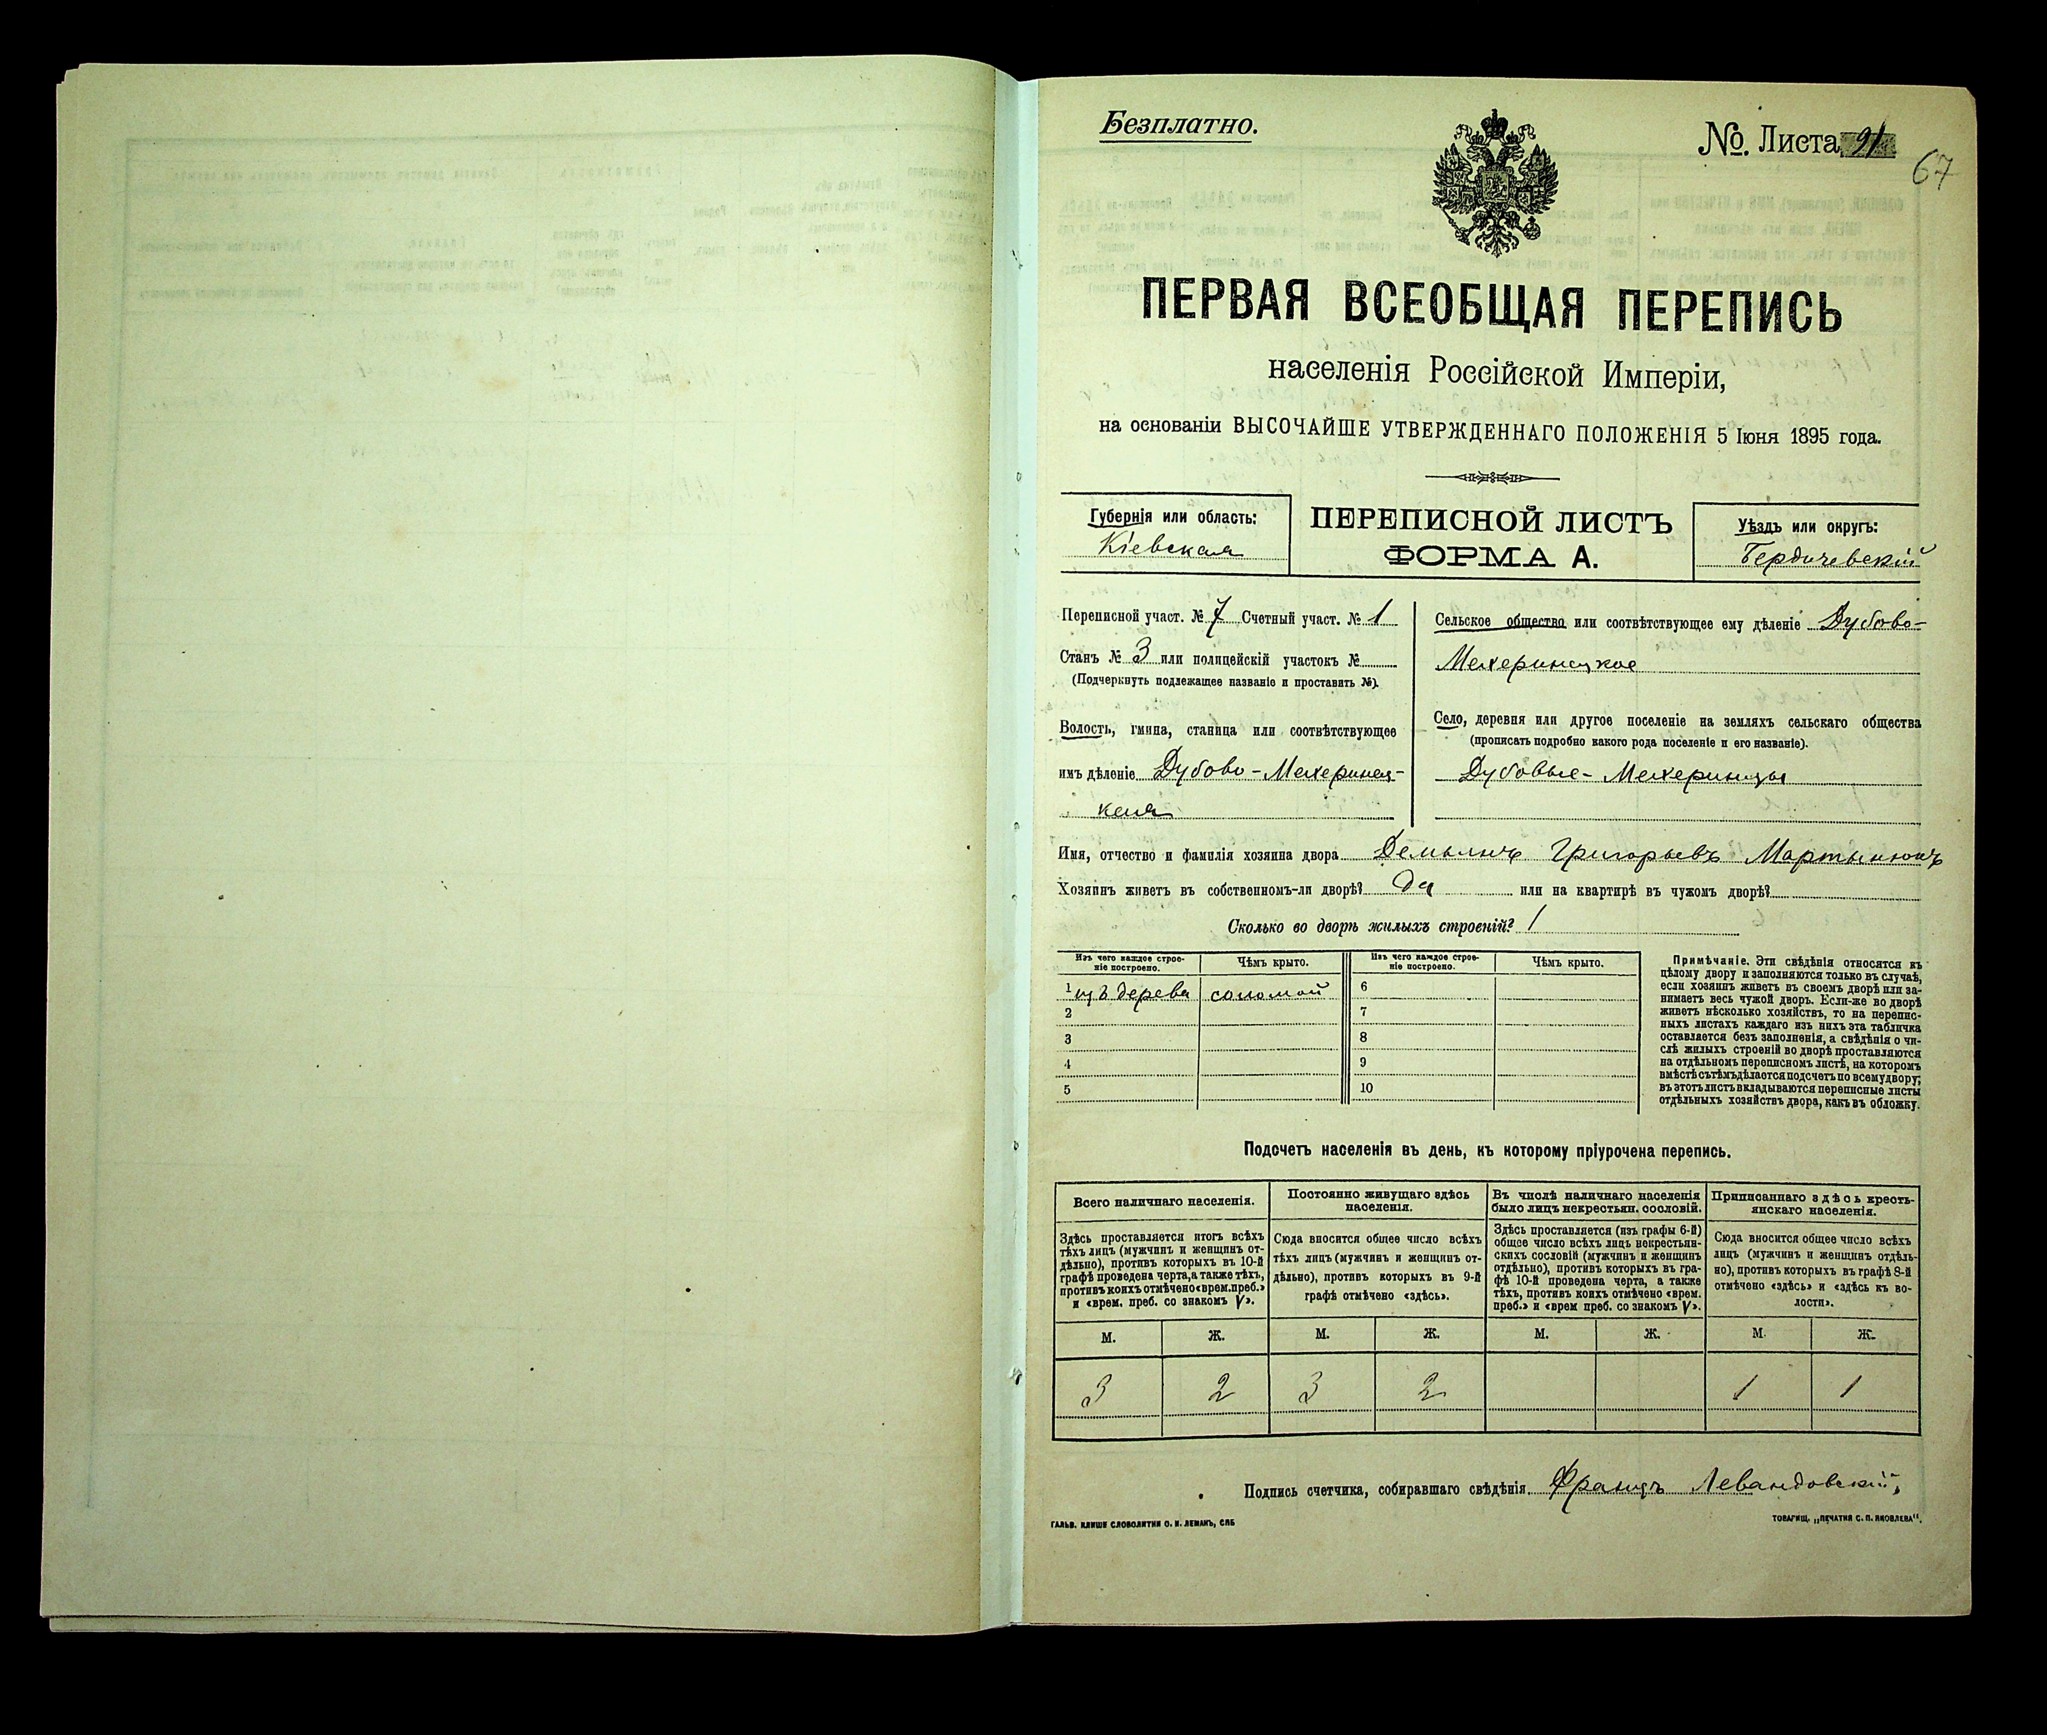 Безплатно.
№. Листа 91
67
ПЕРВАЯ ВСЕОБЩАЯ ПЕРЕПИСЬ
населенія Россійской Имперіи,
на основаніи ВЫСОЧАЙШЕ УТВЕРЖДЕННАГО ПОЛОЖЕНІЯ 5 Іюня 1895 года.
Губернія или область:
Кіевская
ПЕРЕПИСНОЙ ЛИСТЪ
ФОРМА А.
Уѣздъ или округъ:
Бердичевскій
Переписной участ. № 7 Счетный участ. № 1
Станъ № 3 или полицейскій участокъ №
(Подчеркнуть подлежащее названіе и проставить №).
Волость, гмина, станица или соотвѣтствующее
имъ дѣленіе Дубово-Мехеринец-
кая
Сельское общество или соотвѣтствующее ему дѣленіе Дубово-
Мехеринецкое
Село, деревня или другое поселеніе на земляхъ сельскаго общества
(прописать подробно какого рода поселеніе и его названіе).
Дубовые-Мехеринцы
Имя, отчество и фамилія хозяина двора Демьянъ Григорьевъ Мартынюкъ
Хозяинъ живетъ въ собственномъ-ли дворѣ? да или на квартирѣ въ чужомъ дворѣ?
Сколько во дворѣ жилыхъ строеній? 1
Изъ чего каждое строе-
ніе построено.
Чѣмъ крыто.
Изъ чего каждое строе-
ніе построено.
Чѣмъ крыто.
1 изъ дерева соломой 6
2 7
3 8
4 9
5 10
Примѣчаніе. Эти свѣдѣнія относятся къ
цѣлому двору и заполняются только въ случаѣ,
если хозяинъ живетъ въ своемъ дворѣ или за-
нимаетъ весь чужой дворъ. Если-же во дворѣ
живетъ нѣсколько хозяйствъ, то на перепис-
ныхъ листахъ каждаго изъ нихъ эта табличка
оставляется безъ заполненія, а свѣдѣнія о чи-
слѣ жилыхъ строеній во дворѣ проставляются
на отдѣльномъ переписномъ листѣ, на которомъ
вмѣстѣ съ тѣмъ дѣлается подсчетъ по всему двору;
въ этотъ листъ вкладываются переписные листы
отдѣльныхъ хозяйствъ двора, какъ въ обложку.
Подсчетъ населенія въ день, къ которому пріурочена перепись.
Всего наличнаго населенія.
Здѣсь проставляется итогъ всѣхъ
тѣхъ лицъ (мужчинъ и женщинъ от-
дѣльно), противъ которыхъ въ 10-й
графѣ проведена черта, а также тѣхъ,
противъ коихъ отмѣчено «врем. преб.»
и «врем. преб. со знакомъ V».
Постоянно живущаго здѣсь
населенія.
Сюда вносится общее число всѣхъ
тѣхъ лицъ (мужчинъ и женщинъ от-
дѣльно), противъ которыхъ въ 9-й
графѣ отмѣчено «здѣсь».
Въ числѣ наличнаго населенія
было лицъ некрестьян. сословій.
Здѣсь проставляется (изъ графы 6-й)
общее число всѣхъ лицъ некрестьян-
скихъ сословій (мужчинъ и женщинъ
отдѣльно), противъ которыхъ въ гра-
фѣ 10-й проведена черта, а также
тѣхъ, противъ коихъ отмѣчено «врем.
преб.» и «врем преб. со знакомъ V».
Приписаннаго здѣсь кресть-
янскаго населенія.
Сюда вносится общее число всѣхъ
лицъ (мужчинъ и женщинъ отдѣль-
но), противъ которыхъ въ графѣ 8-й
отмѣчено «здѣсь» и «здѣсь къ во-
лости».
М. Ж. М. Ж. М. Ж. М. Ж.
3 2 3 2 1 1
Подпись счетчика, собиравшаго свѣдѣнія Францъ Левандовскій,
ГАЛЬВ. КЛИШЕ СЛОВОЛИТНИ О. И. ЛЕМАНЪ, СПБ
ТОВАРИЩ. „ПЕЧАТНЯ С. П. ЯКОВЛЕВА".